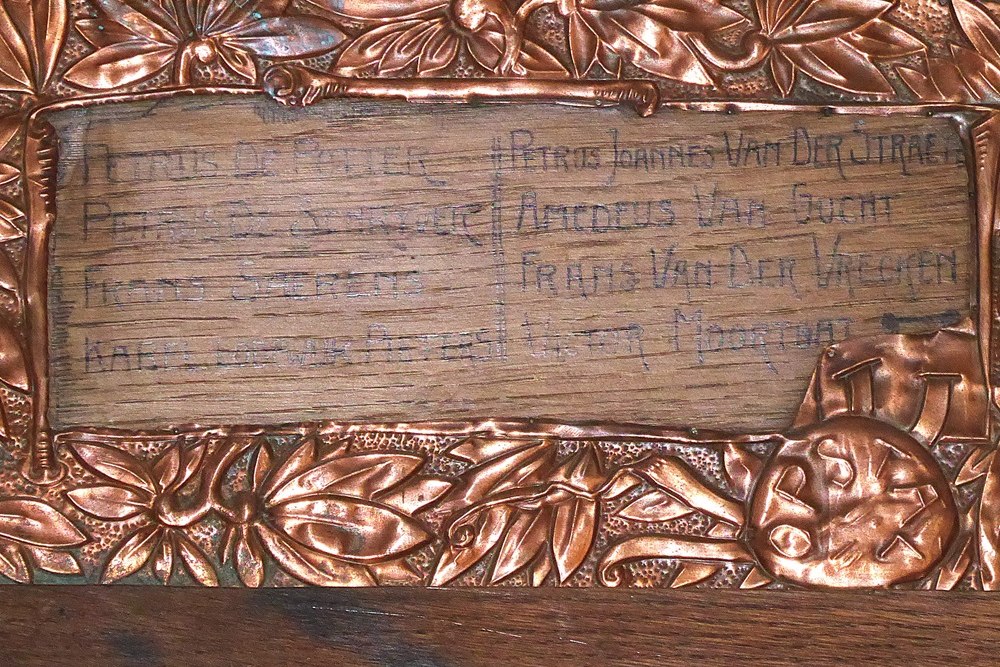 PETRUS DE POTTER
PETRUS DE SCHRIJVER
FRANS SAERENS
KAREL LODEWIJK PIETERS
PETRUS JOANNES VAN DER STRAETE
AMEDEUS VAN GUCHT
FRANS VAN DER VRECKEN
VICTOR MOORTGAT